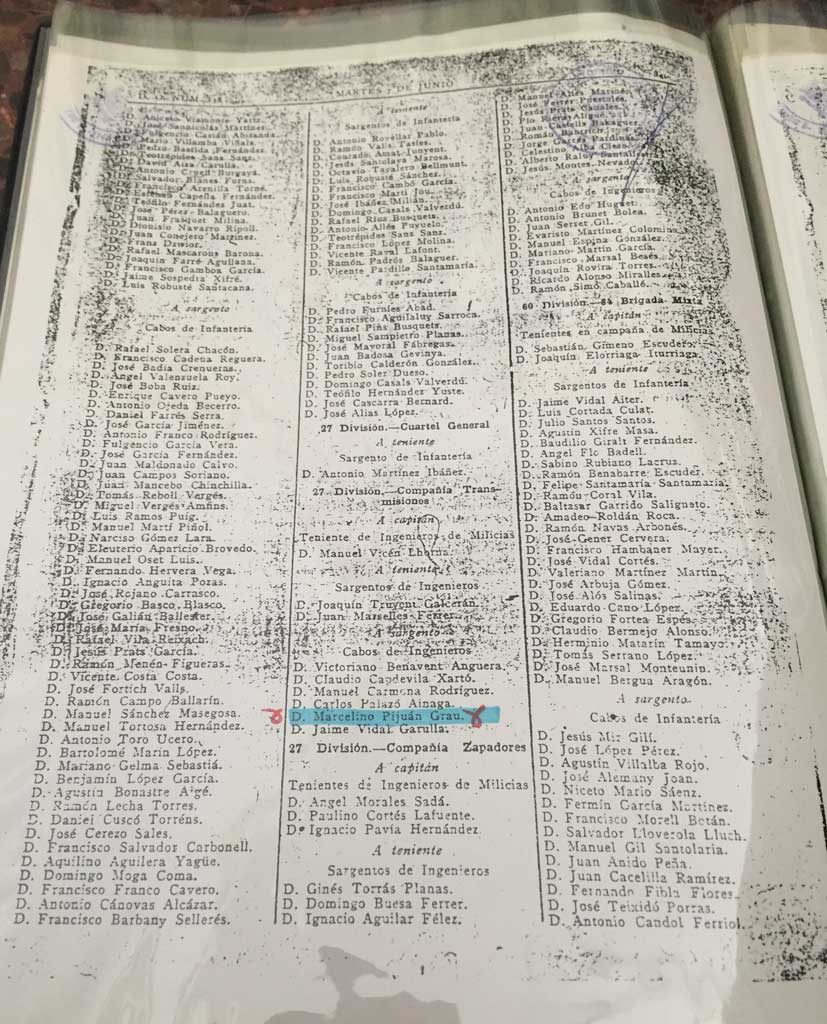 D. O. NUM.
MARTES 7 DE JUNIO
D. Aniceto Viamonte Yartz.
D. José Sannicolás Martínez.
D. Fulgencio Catlán Abiranda.
D. Mario Villamba Viñals.
D. Pedro Bastida Fernández.
D. Teotrépides Sans Sanz.
D. Luis Aixa Carulla.
D. Antonio Cruell Burgayá.
D. Salvador Blanes Forns.
D. Francisco Arenilla Torné.
D. Esteban Capella Fernández.
D. Teófilo Fernández Juat.
D. José Pérez Balaguero.
D. Juan Frasquet Milina.
D. Dionisio Navarro Ripoll.
D. Juan Conejero Martínez.
D. Franz Drwior.
D. Rafael Mascarons Barona.
D. Joaquín Farré Agullana.
D. Francisco Gamboa García.
D. Jaime Sospedra Xifré.
D. Luis Robusté Santacana.
A sargento
Cabos de Infantería
D. Rafael Solera Chacón.
D. Francisco Cadena Reguera.
D. José Badia Crenueras.
D. Angel Valenzuela Roy.
D. José Boba Ruiz.
D. Enrique Cavero Pueyo.
D. Antonio Ojeda Becerro.
D. Daniel Farrés Serra.
D. José García Jiménez.
D. Antonio Franco Rodríguez.
D. Fulgencio García Vera.
D. José García Fernández.
D. Juan Maldonado Calvo.
D. Juan Campos Soriano.
D. Juan Mancebo Chinchilla.
D. Tomás Reboll Vergés.
D. Miguel Vergés Amfins.
D. Luis Ramos Puig.
D. Manuel Martí Piñol.
D. Narciso Gómez Lara.
D. Eleuterio Aparicio Brovedo.
D. Manuel Oset Luis.
D. Fernando Hervera Vega.
D. Ignacio Anguita Pozas.
D. José Rojano Carrasco.
D. Gregorio Basco Blasco.
D. José Galián Ballester.
D. José María Fresno.
D. Rafael Vila Reixach.
D. Jesús Prats García.
D. Ramón Menén Figueras.
D. Vicente Costa Costa.
D. José Fortich Valls.
D. Ramón Campo Ballarín.
D. Manuel Sánchez Masegosa.
D. Manuel Tortosa Hernández.
D. Antonio Toro Ucero.
D. Bartolomé Marín López.
D. Mariano Gelma Sebastiá.
D. Benjamín López García.
D. Agustín Bonastre Aigé.
D. Ramón Lecha Torres.
D. Daniel Cuscó Torréns.
D. José Cerezo Sales.
D. Francisco Salvador Carbonell.
D. Aquilino Aguilera Yagüe.
D. Domingo Moga Coma.
D. Francisco Franco Cavero.
D. Antonio Cánovas Alcázar.
D. Francisco Barbany Sellerés.
A teniente
Sargentos de Infantería
D. Antonio Rovellar Pablo.
D. Ramón Valls Tasies.
D. Conrado Amat Junyent.
D. Jesús Santolaya Marosa.
D. Octavio Tavalero Bellmunt.
D. Luis Robusté Sánchez.
D. Francisco Cambó García.
D. Francisco Martí Jou.
D. José Ibáñez Milián.
D. Domingo Casals Valverdú.
D. Rafael Rius Busquets.
D. Antonio Allés Puyuelo.
D. Teotrépides Sans Sanz.
D. Francisco López Molina.
D. Vicente Raval Lafont.
D. Ramón Padrós Balaguer.
D. Vicente Pardillo Santamaría.
A sargento
Cabos de Infantería
D. Pedro Furnies Abad.
D. Francisco Aguilaluy Sarroca.
D. Rafael Piñs Busquets.
D. Miguel Sampietro Planas.
D. José Mayoral Fábregas.
D. Juan Badosa Gevinya.
D. Toribio Calderón González.
D. Pedro Soler Dueso.
D. Domingo Casals Valverdú.
D. Teófilo Hernández Yuste.
D. José Cascarra Bernard.
D. José Alias López.
27 División.—Cuartel General
A teniente
Sargento de Infantería
D. Antonio Martínez Ibáñez.
27 División.—Compañía Trans-
misiones
A capitán
Teniente de Ingenieros de Milicias
D. Manuel Vicén
A teniente
Sargentos de Ingenieros
D. Joaquín Truyent Galcerán.
D. Juan Marselles Ferrer.
A sargento
Cabos de Ingenieros
D. Victoriano Benavent Anguera.
D. Claudio Capdevila Xartó.
D. Manuel Carmona Rodríguez.
D. Carlos Palazó Ainaga.
D. Marcelino Pijuán Grau.
D. Jaime Vidal Garulla.
27 División.—Compañía Zapadores
A capitán
Tenientes de Ingenieros de Milicias
D. Angel Morales Sadá.
D. Paulino Cortés Lafuente.
D. Ignacio Pavía Hernández.
A teniente
Sargentos de Ingenieros
D. Ginés Torrás Planas.
D. Domingo Buesa Ferrer.
D. Ignacio Aguilar Félez.
D. Manuel Allés Mariné.
D. José Ferrer Puértoles.
D. Jesús Prats Canales.
D. Pío Riera Aligué.
D. Juan Castells Bakaguer.
D. Román Bantrich
D. Jorge Garcés Pardina.
D. Celestino Alba Clezo.
D. Alberto Raluy Santaliestra.
D. Jesús Montes Nevado.
A sargento
Cabos de Ingenieros
D. Antonio Edo Huguet.
D. Antonio Brunet Bolea.
D. Juan Serret Gil.
D. Evaristo Martínez Colomina.
D. Manuel Espina González.
D. Mariano Martín García.
D. Francisco Marsal Besés.
D. Joaquín Rovira Torres.
D. Ricardo Alonso Miralles.
D. Ramón Simó Caballé.
60 División.—84 Brigada Mixta
A capitán
Tenientes en campaña de Milicias
D. Sebastián Gimeno Escudero.
D. Joaquín Elorriaga Iturriaga.
A teniente
Sargentos de Infantería
D. Jaime Vidal Aiter.
D. Luis Cortada Culat.
D. Julio Santos Santos.
D. Agustín Xifre Masa.
D. Baudilio Giralt Fernández.
D. Angel Flo Badell.
D. Sabino Rubiano Lacruz.
D. Ramón Benabarre Escuder.
D. Felipe Santamaría Santamaría.
D. Ramón Coral Vila.
D. Baltasar Garrido Saligneto.
D. Amadeo Roldán Roca.
D. Ramón Navas Arbonés.
D. José Gener Cervera.
D. Francisco Hambaner Mayer.
D. José Vidal Cortés.
D. Valeriano Martínez Martín.
D. José Arbuja Gómez.
D. José Alós Salinas.
D. Eduardo Cano López.
D. Gregorio Fortea Espés.
D. Claudio Bermejo Alonso.
D. Herminio Matarín Tamayo.
D. Tomás Serrano López.
D. José Marsal Monteunin.
D. Manuel Bergua Aragón.
A sargento
Cabos de Infantería
D. Jesús Mir Gili.
D. José López Pérez.
D. Agustín Villalba Rojo.
D. José Alemany Joan.
D. Niceto Mario Sáenz.
D. Fermín García Martínez.
D. Francisco Morell Betán.
D. Salvador Lloverola Lluch.
D. Manuel Gil Santolaria.
D. Juan Anido Peña.
D. Juan Cacelilla Ramírez.
D. Fernando Fibla Flores.
D. José Teixidó Porras.
D. Antonio Candol Ferriol.